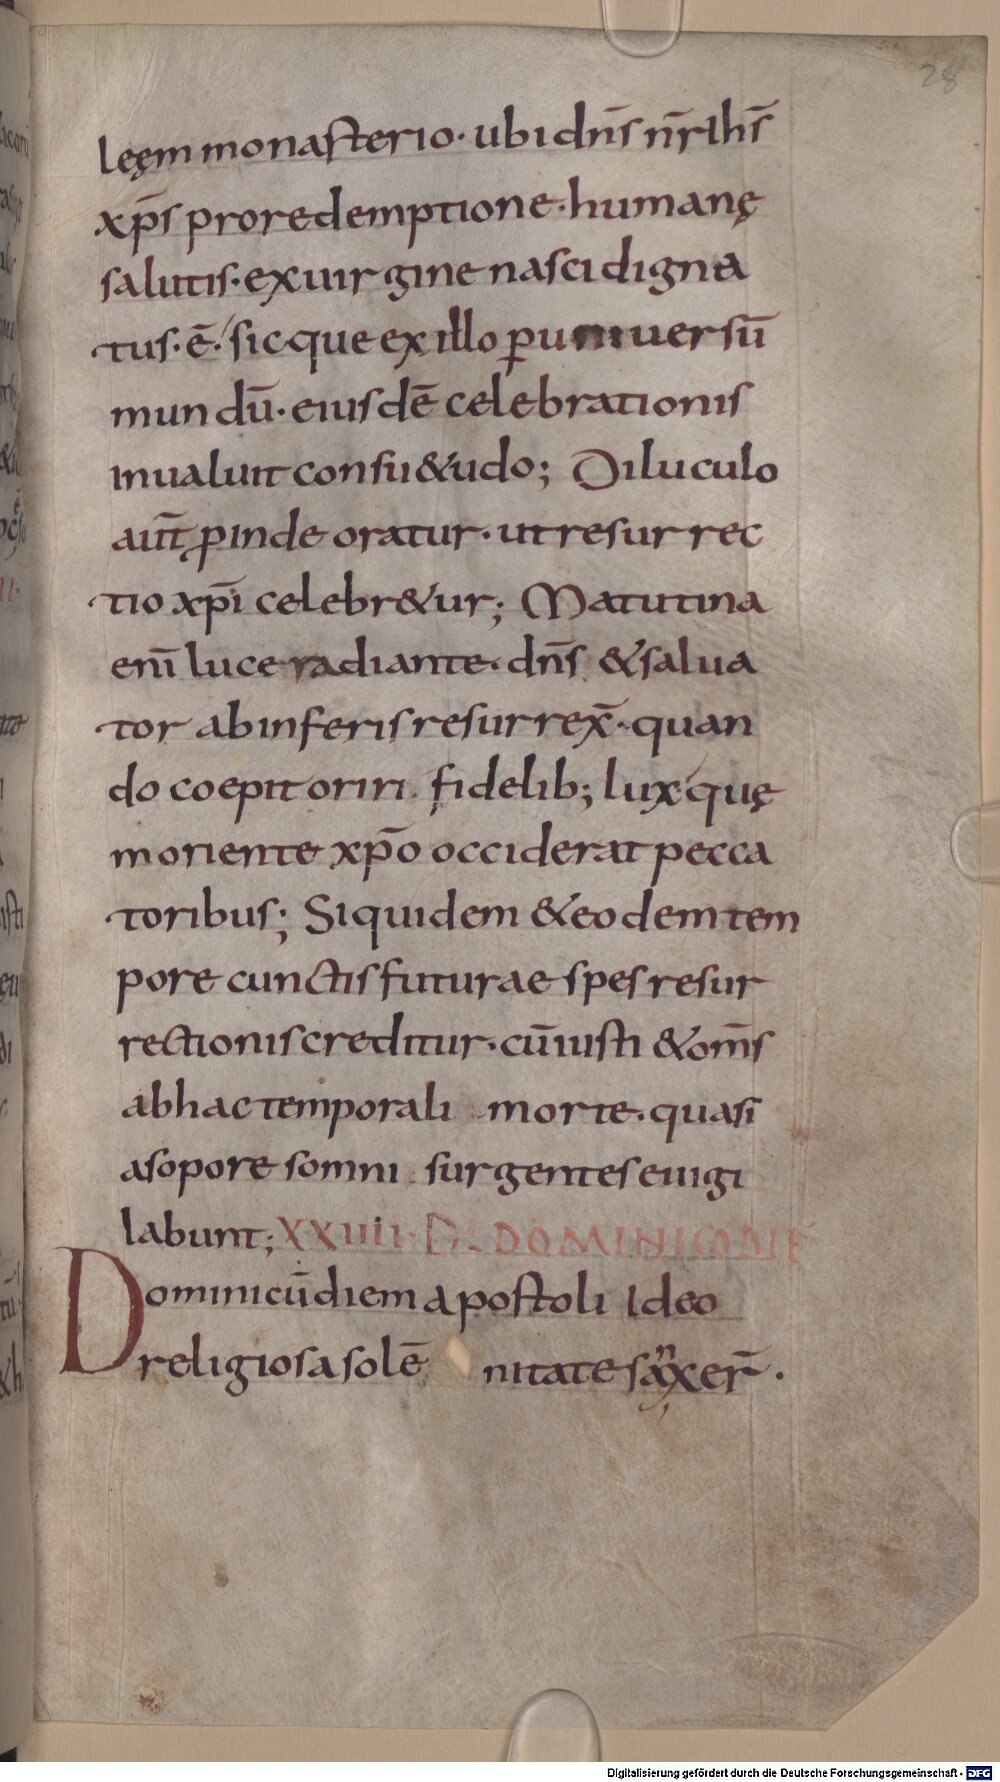 28
leęm monasterio· ubi dn̄s nr̄ ihs̄
xp̄s pro redemptione· humanę
salutis· ex uirgine nasci digna
tus· ē· sicque ex illo ꝑ uniuersū
mundū· eiusdē celebrationis
inualuit consu&udo; Diluculo
aut̄ ꝓinde oratur· ut resurrec
tio xp̄i celebr&ur; Matutina
enī luce radiante· dn̄s & salua
tor ab inferis resurrex̄· quan
do coepit oriri fidelib; lux quę
moriente xp̄o occiderat pecca
toribus; Siquidem & eodem tem
pore cunctis futurae spes resur
rectionis creditur· cū iusti & om̄s
ab hac temporali morte· quasi
a sopore somni surgentes euigi
labunt; XXIIII· D̄: DOMINICO DIE
Dominicū diem apostoli Ideo
religiosa solē nitate sanxer̄·
Digitalisierung gefördert durch die Deutsche Forschungsgemeinschaft - DFG